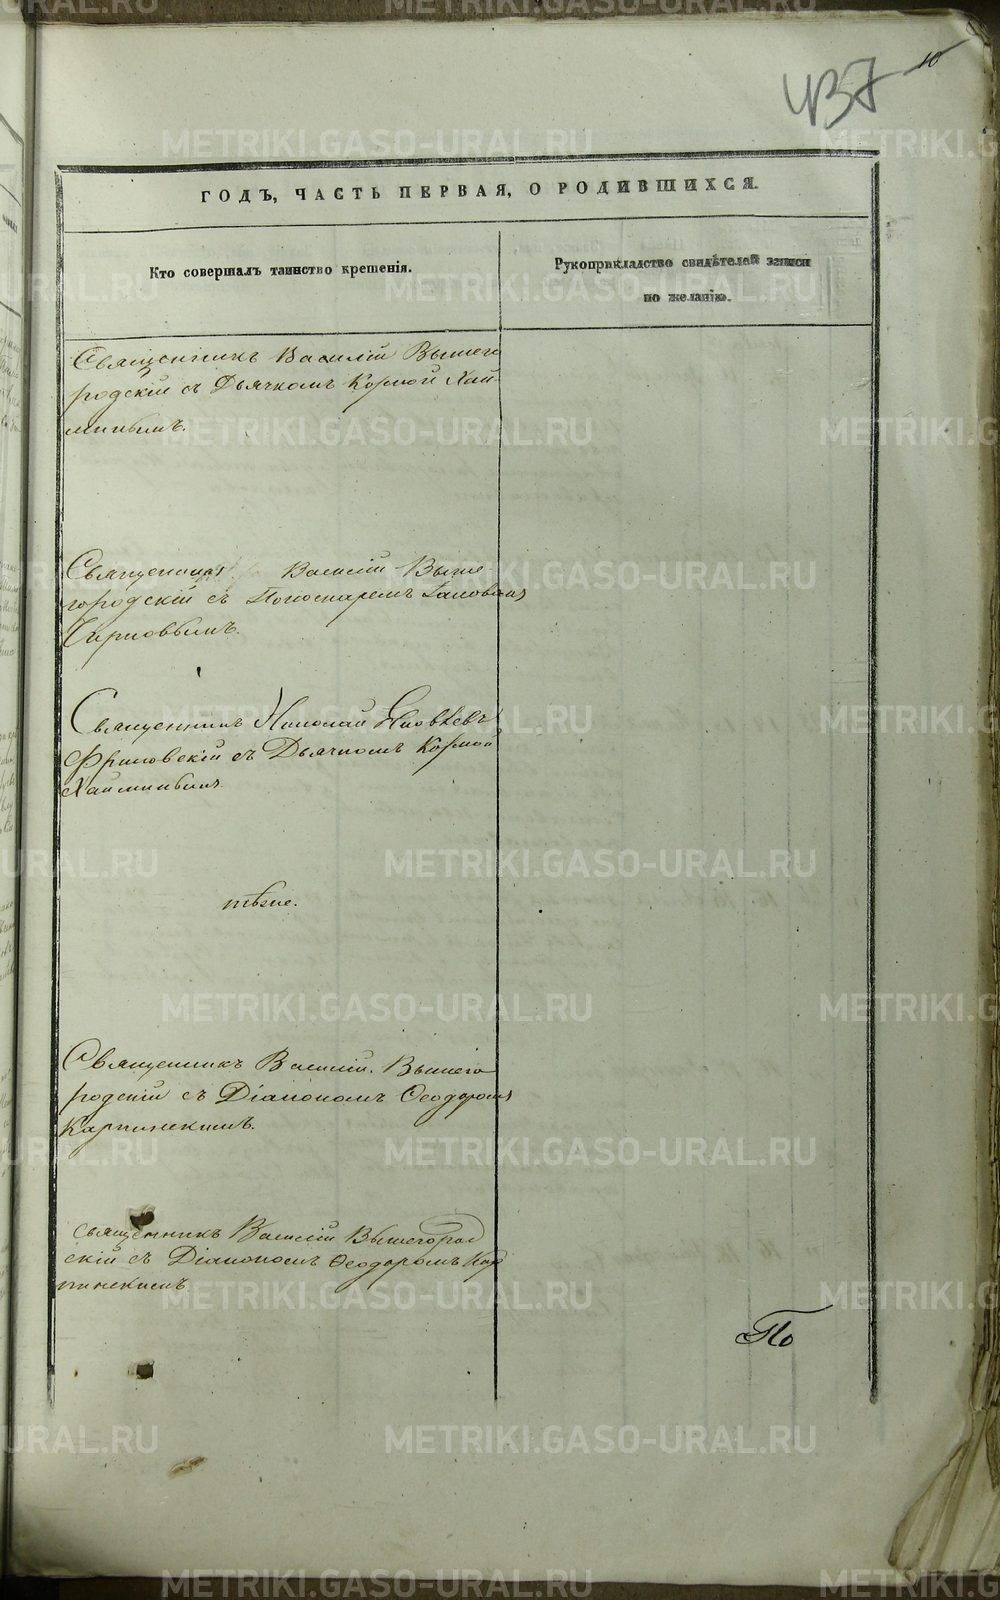 10
437
ГОДЪ, ЧАСТЬ ПЕРВАЯ, О РОДИВШИХСЯ.
Кто совершалъ таинство крещенія.
Рукоприкладство свидѣтелей записи
по желанію.
Священникъ Василій Вышего
родскій съ Дьячкомъ Кормой Хай
минымъ.
Священникъ Василій Выше
городскій съ Пономаремъ
Чирковымъ.
Священникъ Николай Яковлевъ
Фриловскій съ Дьячкомъ Кормой
Хайминымъ.
тѣже.
Священникъ Василій Вышего
родскій съ Діакономъ Ѳеодоромъ
Карпинскимъ.
Священникъ Василій Вышегород
скій съ Діакономъ Ѳеодоромъ Кар
пинскимъ
По
METRIKI.GASO-URAL.RU